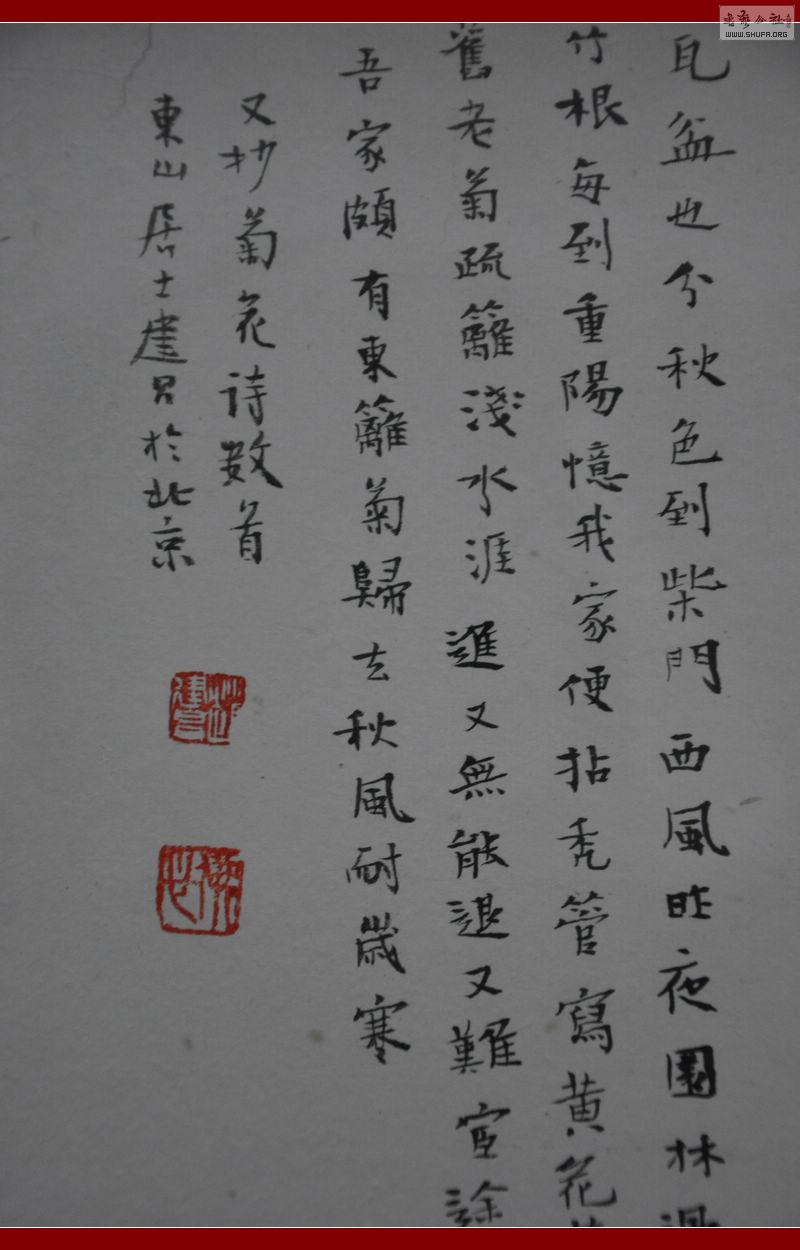 书艺公社
WWW.SHUFA.ORG
瓦盆也分秋色到柴門西風昨夜園林
竹根每到重陽憶我家便拈禿管寫黄花
舊老菊疏籬淺水涯進又無能退又難宦途
吾家頗有東籬菊歸去秋風耐歲寒
又抄菊花詩數首
東山居士建於北京